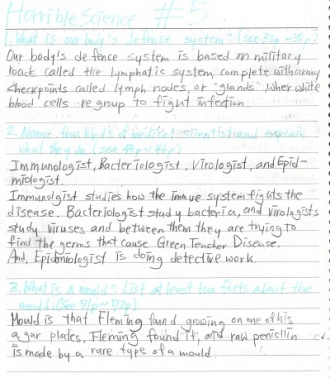 Horrible Science #5
1. What is our body's defense system? (see 35p ~ 36p)
Our body's defence system is based on military
road called the lymphatic system, complete with army
checkpoints called lymph nodes, or "glands" wher white
blood cells re group to fight infection.
2. Name four kinds of medical scientist and explain
what they do. (see
Immunologist, Bacteriologist, Virologist, and Epid-
miologist.
Immunolgist studies how the immue system fights the
disease. Bacteriologist study bacterica, and virologists
study viruses and between them they are trying to
find the germs that cause Green Teacher Disease.
And, Epidimiologist is doing detective work.
3. What is a mould? List at least two facts about the
mould. (see 71p ~ 72p)
Mould is that Fleming found growing on one of his
agar plates, Fleming found it, and raw penicillin
is made by a rare type of a mould.